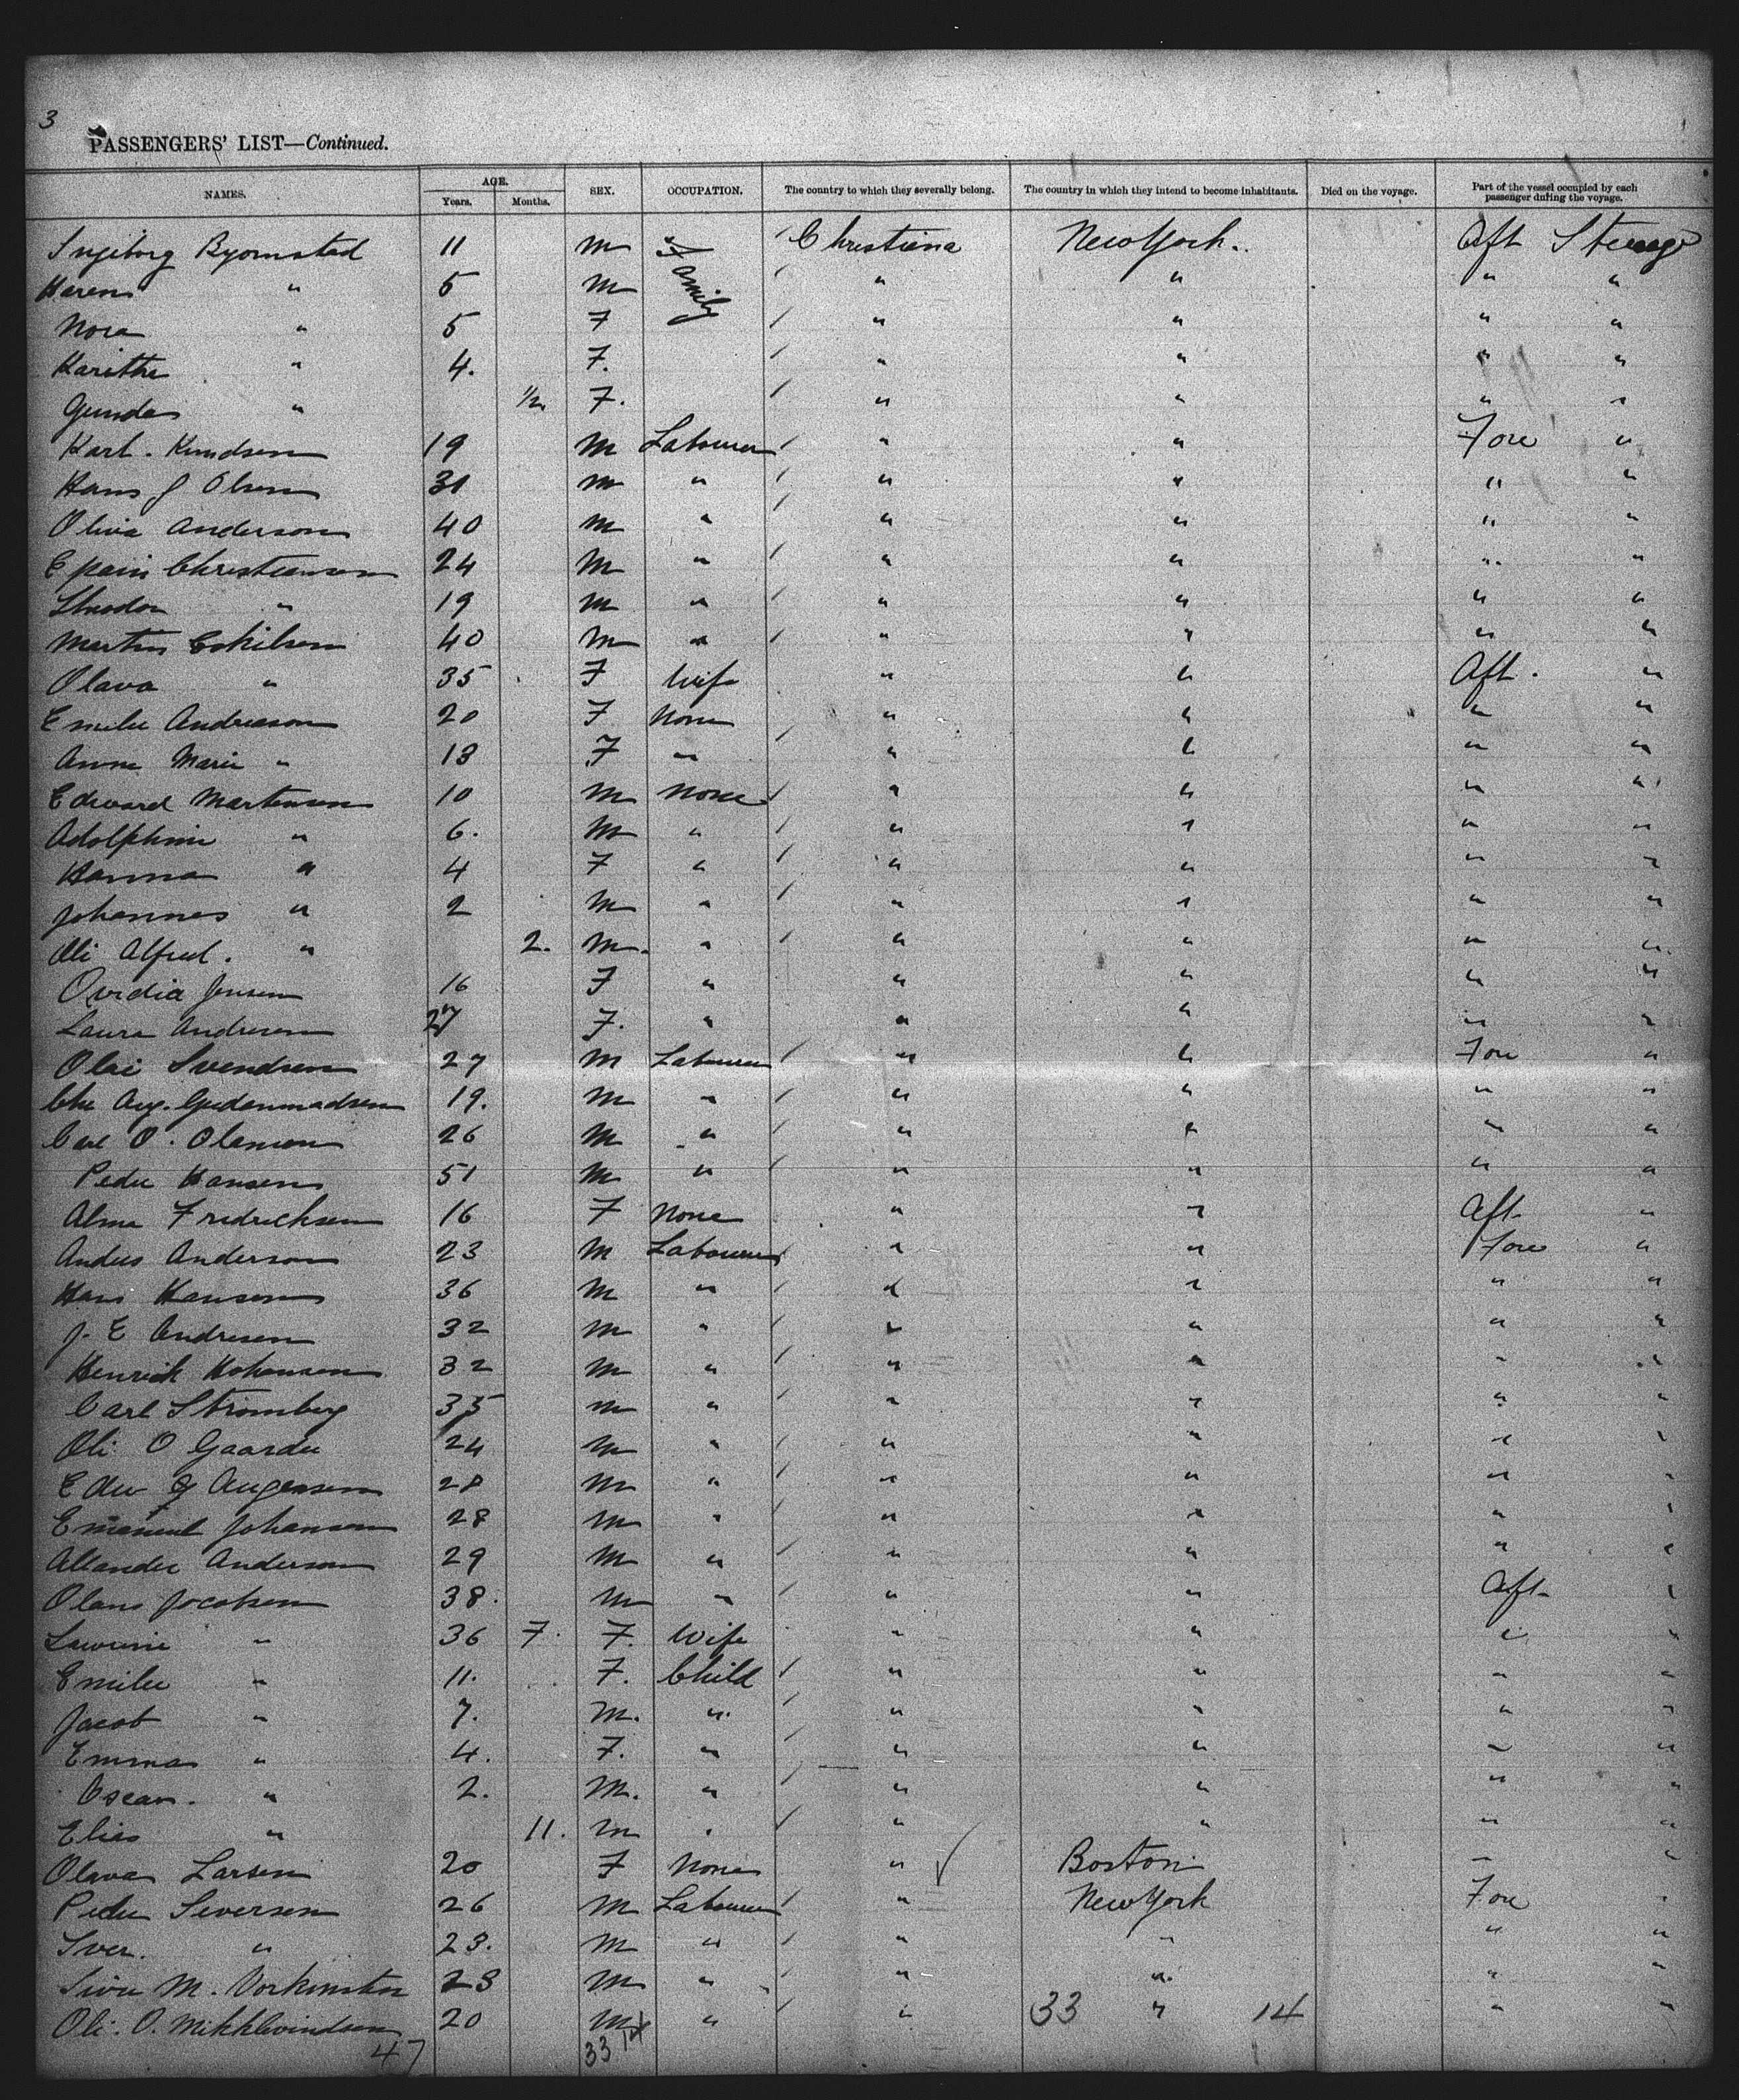 3
PASSENGERS' LIST—Continued.
NAMES. AGE. Years. Months. SEX. OCCUPATION. The country to which they severally belong. The country in which they intend to become inhabitants. Died on the voyage. Part of the vessel occupied by each passenger during the voyage.
Ingeborg Bjornstad 11 M Family Christiana New York. Aft Steerage
Karen " 5 M " " " "
Nora " 5 F " " " "
Karithe " 4. F. " " " "
Gunda " 1/2 F. " " " "
Karl. Knudsen 19 M Labourer " " Fore "
Hans J Olsen 31 M " " " " "
Olivia Anderson 40 M " " " " "
Christiansen 24 M " " " " "
" 19 M " " " " "
Martin Eskilsen 40 M " " " " "
Olava " 35 F Wife " " Aft. "
Emilie Andreason 20 F None " " " "
Anna Marie " 18 F " " " " "
Edward Martensen 10 M None " " " "
Adolphine " 6. M " " " " "
Hanna " 4 F " " " " "
Johannes " 2 M " " " " "
Ole Alfred. " 2. M. " " " " "
Ovidia Jensen 16 F " " " " "
Laura Andresen 27 F. " " " " "
Olai Svendsen 27 M Labourer " " Fore "
Chr Aug. Gudanmadsen 19. M " " " " "
Carl O. Olamson 26 M " " " " "
Peder Hansen 51 M " " " " "
Alma Fredricksen 16 F None " " Aft "
Andres Anderson 23 M Labourer " " Fore "
Hans Hansen 36 M " " " " "
J. E Andresen 32 M " " " " "
Henrick Hohansen 32 M " " " " "
Carl Stromberg 35 M " " " " "
Ole O Gaarder 24 M " " " " "
Edw J Augensen 28 M " " " " "
Emanuel Johansen 28 M " " " " "
Anderson 29 M " " " " "
Olans Jacobsen 38. M " " " Aft "
" 36 7. F. Wife " " " "
Emilie " 11. F. Child " " " "
Jacob " 7. M. " " " " "
Emma " 4. F. " " " " "
Oscar. " 2. M. " " " " "
Elias " 11. M " " " " "
Olava Larsen 20 F None " Boston " "
Peder Seversen 26 M Labourer " New York Fore "
Iver. " 23. M " " " " "
M. 23 M " " " " "
Ole. O. 20 M " " 33 " 14 " "
47 33 14